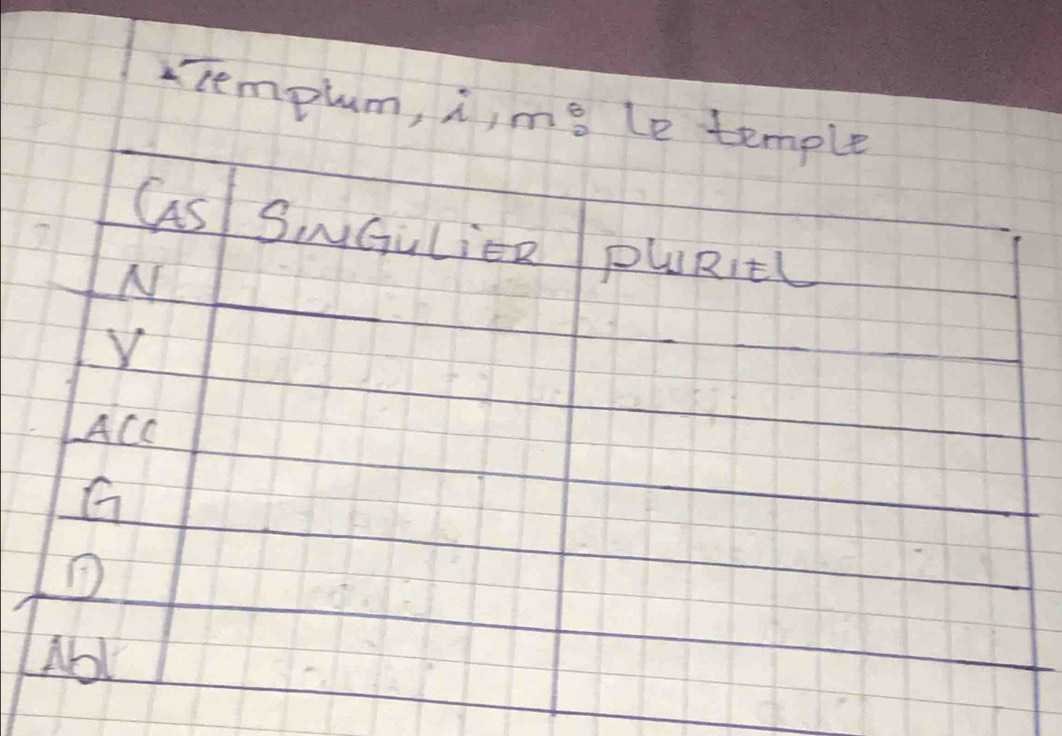 Templum, i, m: le temple
CAS SINGULIER PLURIEL
N
V
ACC
G
D
Abl